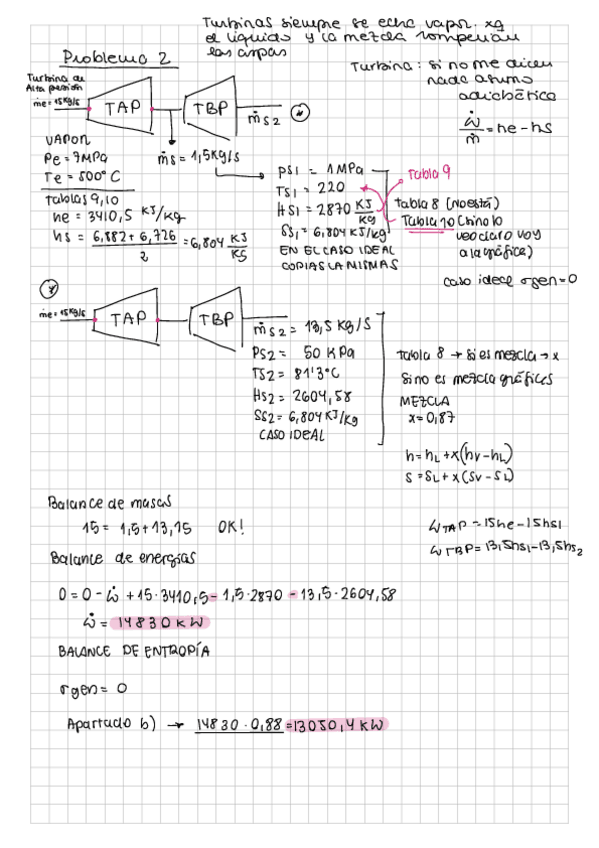 Turbinas siempre se echa vapor. xq
el liquido y la mezcla romperian
las aspas
Problema 2
Turbina: si no me dicen
nada asumo
adiabática
Ẇ/ṁ = he - hs
Turbina de
Alta presión
ṁe = 15 Kg/s
TAP
TBP
ṁs2
ṁs = 1,5 Kg/s
VAPOR
Pe = 7MPa
Te = 500°C
Tablas 9,10
he = 3410,5 KJ/Kg
hs = (6,882 + 6,726)/2 = 6,804 KJ/Kg
PS1 = 1 MPa
TS1 = 220
HS1 = 2870 KJ/Kg
SS1 = 6,804 KJ/Kg
EN EL CASO IDEAL
COPIAS LA MISMAS
Tabla 9
tabla 8 (no está)
Tabla 10 (si no lo
veo claro voy
a la gráfica)
caso ideal σgen = 0
ṁe = 15 Kg/s
TAP
TBP
ṁs2 = 13,5 Kg/s
PS2 = 50 KPa
TS2 = 81'3°C
HS2 = 2604,58
SS2 = 6,804 KJ/Kg
CASO IDEAL
tabla 8 → si es mezcla → x
Si no es mezcla gráficas
MEZCLA
x = 0,87
h = hL + x(hv - hL)
s = sL + x(sv - sL)
Balance de masas
15 = 1,5 + 13,15 OK!
ẆTAP = 15he - 15hs1
ẆTBP = 13,5hs1 - 13,5hs2
Balance de energías
0 = 0 - Ẇ + 15·3410,5 - 1,5·2870 - 13,5·2604,58
Ẇ = 14830 KW
BALANCE DE ENTROPÍA
σgen = 0
Apartado b) → 14830·0,88 = 13050,4 KW